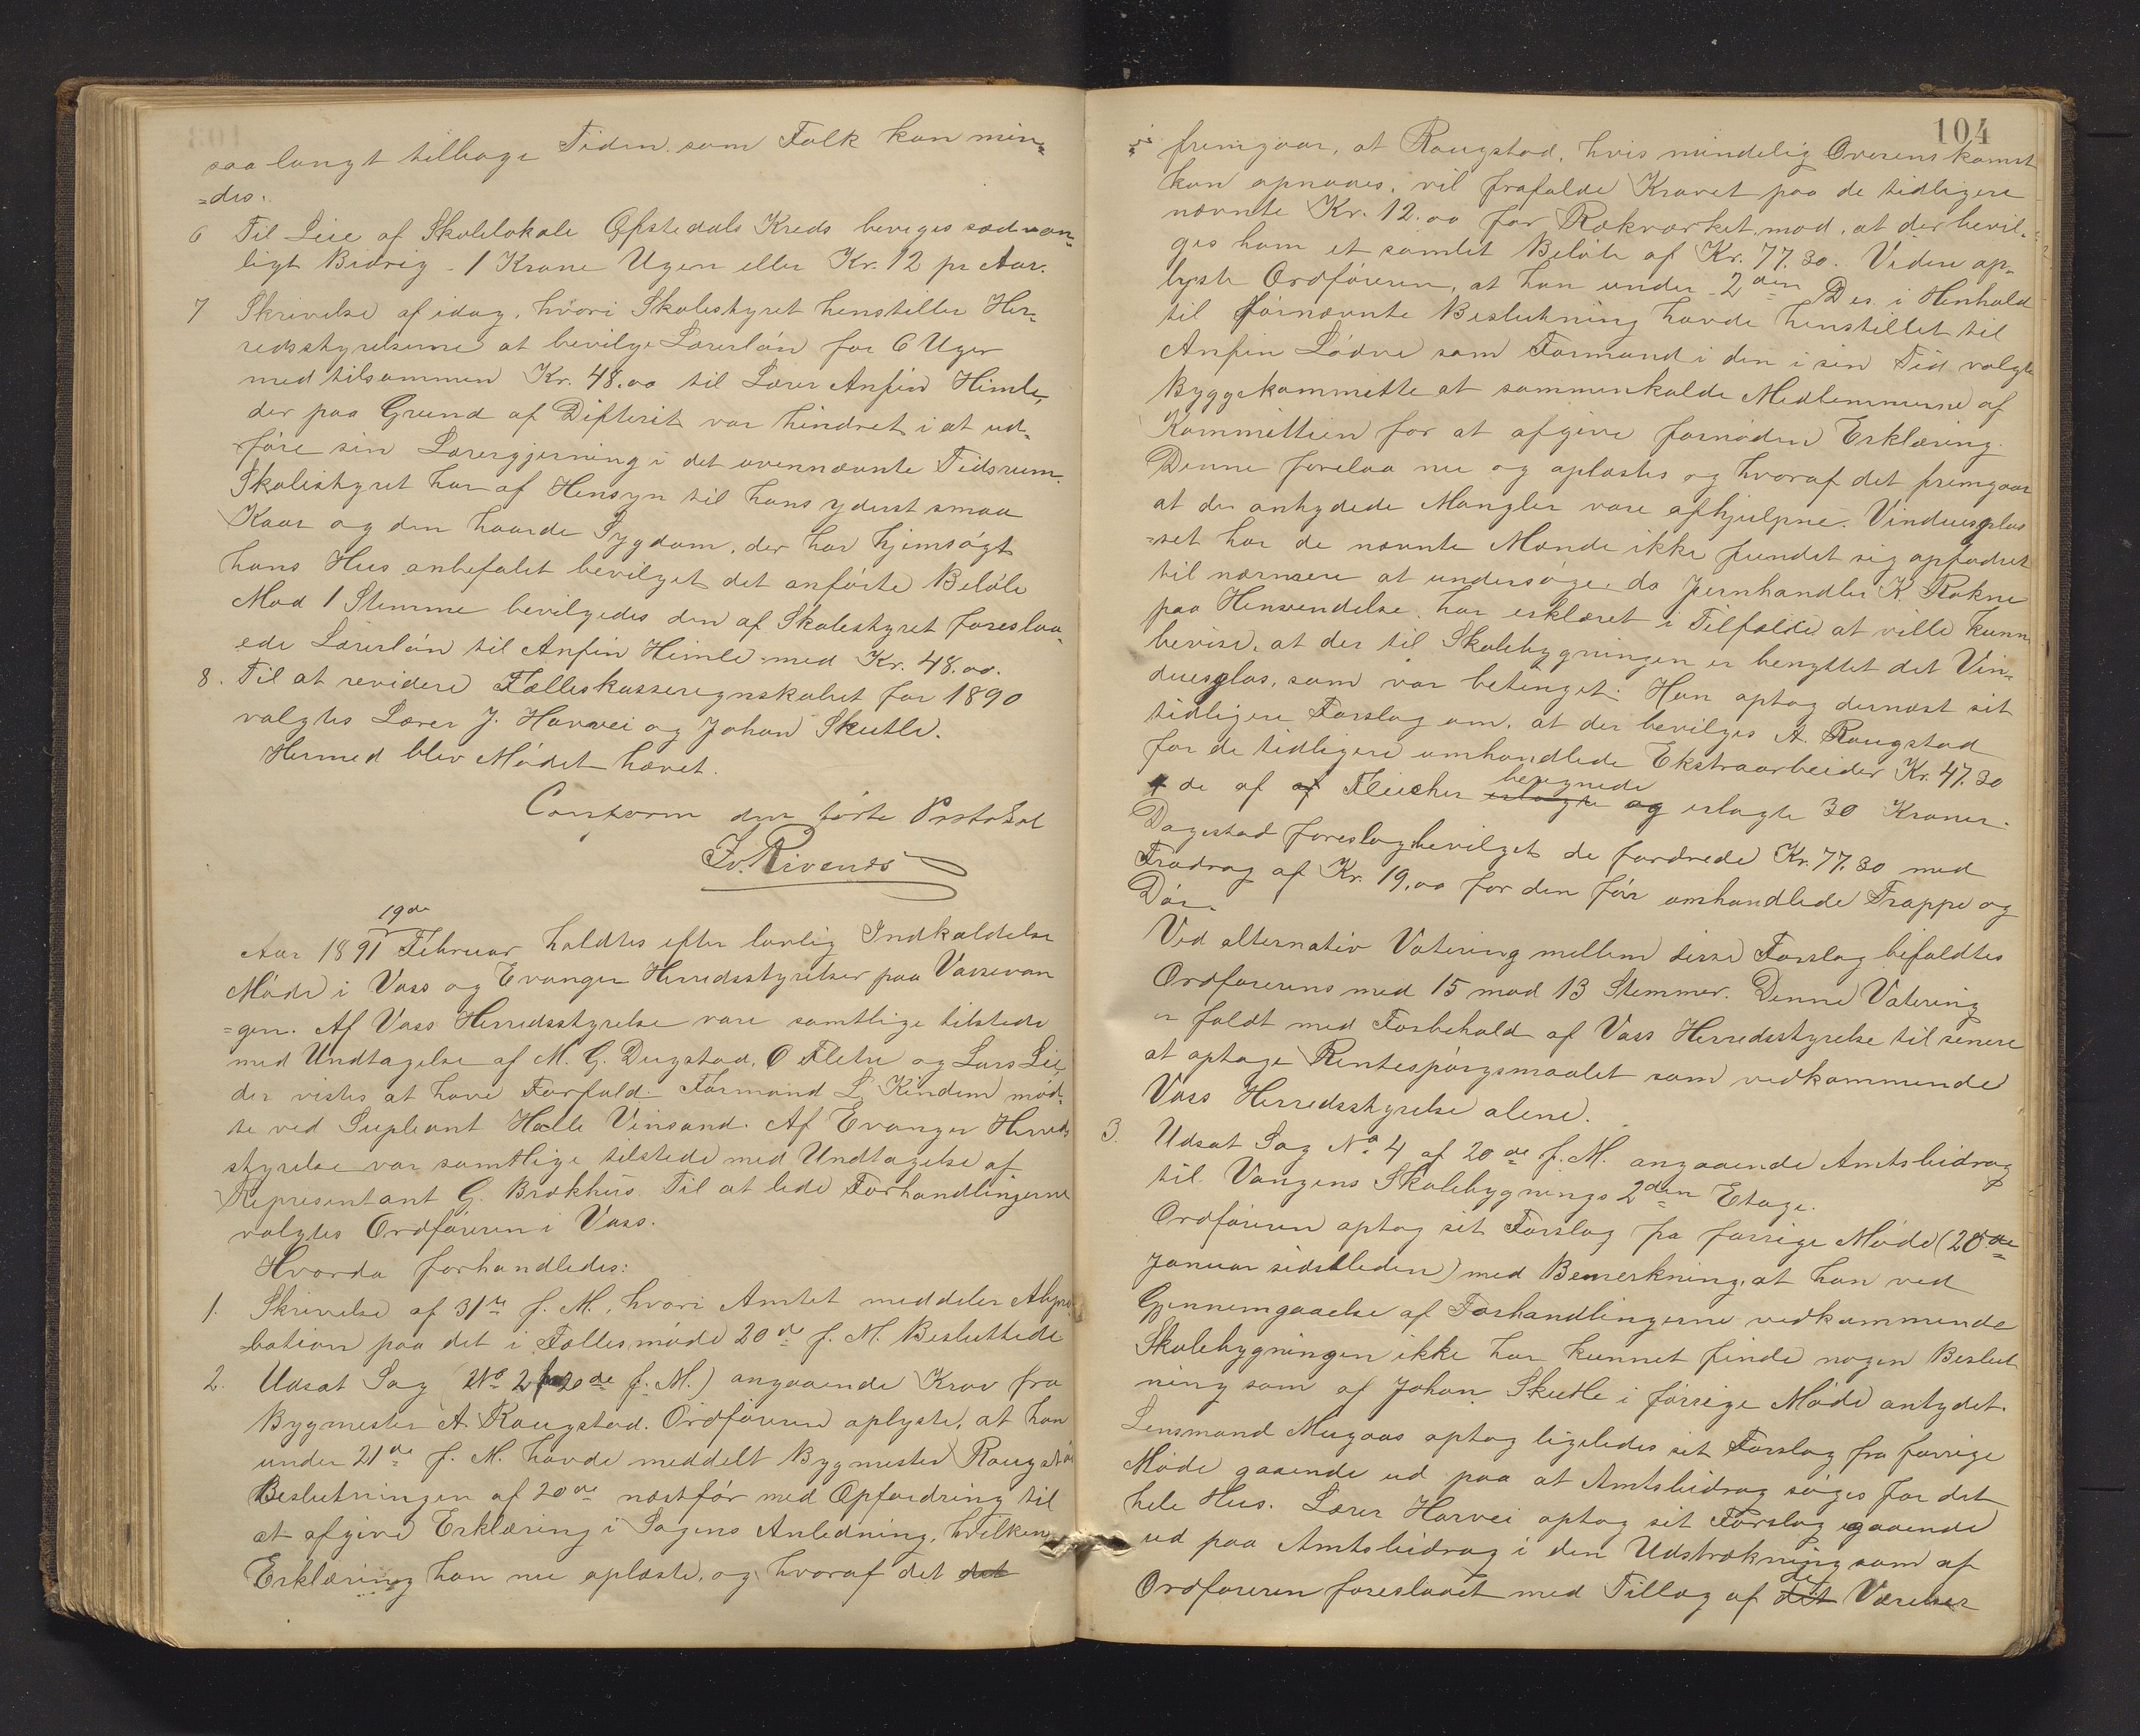 saa langt tilbage Tiden som Folk kan min-
=des.
6 Til Leie af Skolelokale Øfstedals Kreds beviges sædvan-
ligt Bidrag - 1 Krone Ugen eller Kr. 12 pr Aar.
7 Skrivelse af idag, hvori Skolestyret henstiller Her-
redsstyrelserne at bevilge Lærerløn for 6 Uger
med tilsammen Kr. 48.00 til Lærer Anfin Himle,
der paa Grund af Difterit var hindret i at ud-
føre sin Lærergjerning i det ovennævnte Tidsrum.
Skolestyret har af Hensyn til hans yderst smaa
Kaar og den haarde Sygdom, der har hjemsøgt
hans Hus anbefalet bevilget det anførte Beløb.
Mod 1 Stemme bevilgedes den af Skolestyret foreslaa-
ede Lærerløn til Anfin Himle med Kr. 48.00.
8. Til at revidere Fælleskasseregnskabet for 1890
valgtes Lærer J. Harvei og Johan Skutle.
Hermed blev Mødet hævet.
Conform den førte Protokol
Iv. Rivenes
19de
Aar 1891 Februar holdtes efter lovlig Indkaldelse
Møde i Voss og Evanger Herredsstyrelser paa Vossevan
=gen. Af Voss Herredsstyrelse vare samtlige tilstede
med Undtagelse af M. G. Dugstad, O Fletre og Lars Lie,
der vistes at have Forfald. Formand L. Kindem mød-
te ved Supleant Halle Vinsand. Af Evanger Herreds
styrelse var samtlige tilstede med Undtagelse af
Representant G. Brækhus. Til at lede Forhandlingerne
valgtes Ordføreren i Voss.
Hvorda forhandledes:
1. Skrivelse af 31te f. M., hvori Amtet meddeler Appro
bation paa det i Fællesmøde 20de f. M. Besluttede
2. Udsat Sag No 2 20de f. M.) angaaende Krav fra
Bygmester A. Raugstad. Ordføreren oplyste, at han
under 21de f. M. havde meddelt Bygmester Raugstad
Beslutningen af 20de næstfør med Opfordring til
at afgive Erklæring i Sagens Anledning, hvilken
Erklæring han nu oplæste, og hvoraf det det
104
fremgaar, at Raugstad, hvis mindelig Overenskomst
kan opnaaes, vil frafalde Kravet paa de tidligere
nævnte Kr. 12.00 for Rækværket, mod, at der bevil-
ges ham et samlet Beløb af Kr. 77.30. Videre op-
lyste Ordføreren, at han under 2den Des. i Henhold
til førnævnte Beslutning havde henstillet til
Anfin Lødve som Formand i den i sin Tid valgte
Byggekommitte at sammenkalde Medlemmerne af
Kommitteen for at afgive fornøden Erklæring.
Denne forelaa nu og oplæstes og hvoraf det fremgaar
at de antydede Mangler vare afhjulpne. Vinduesglas
=set har de nævnte Mænde ikke fundet sig opfodret
til nærmere at undersøge, da Jernhandler K. Rokne
paa Henvendelse har erklæret i Tilfælde at ville kunne
bevise, at der til Skolebygningen er benyttet det Vin-
duesglas, som var betinget. Han optog dernæst sit
tidligere Forslag om, at der bevilges A. Raugstad
for de tidligere omhandlede Ekstraarbeider Kr. 47.30
+ de af af Fleischer erlagte beregnede og erlagte 30 Kroner.
Dagestad foreslog bevilget de fordrede Kr. 77.30 med
Fradrag af Kr. 19.00 for den før omhandlede Trappe og
Dør.
Ved alternativ Votering mellem disse Forslag bifaldtes
Ordførerens med 15 mod 13 Stemmer. Denne Votering
er faldt med Forbehold af Voss Herredsstyrelse til senere
at optage Rentespørgsmaalet som vedkommende
Voss Herredsstyrelse alene.
3. Udsat Sag No. 4 af 20de f. M. angaaende Amtsbidrag
til Vangens Skolebygnings 2den Etage.
Ordføreren optog sit Forslag fra forrige Møde (20de
Januar sidstleden) med Bemerkning, at han ved
Gjennemgaaelse af Forhandlingerne vedkommende
Skolebygningen ikke har kunnet finde nogen Beslut
ning som af Johan Skutle i forrige Møde antydet.
Lensmand Mugaas optog ligeledes sit Forslag fra forrige
Møde gaaende ud paa at Amtsbidrag søges for det
hele Hus. Lærer Harvei optog sit Forslag gaaende
ud paa Amtsbidrag i den Udstrækning som af
Ordføreren foreslaaet med Tillæg af det de Værelser